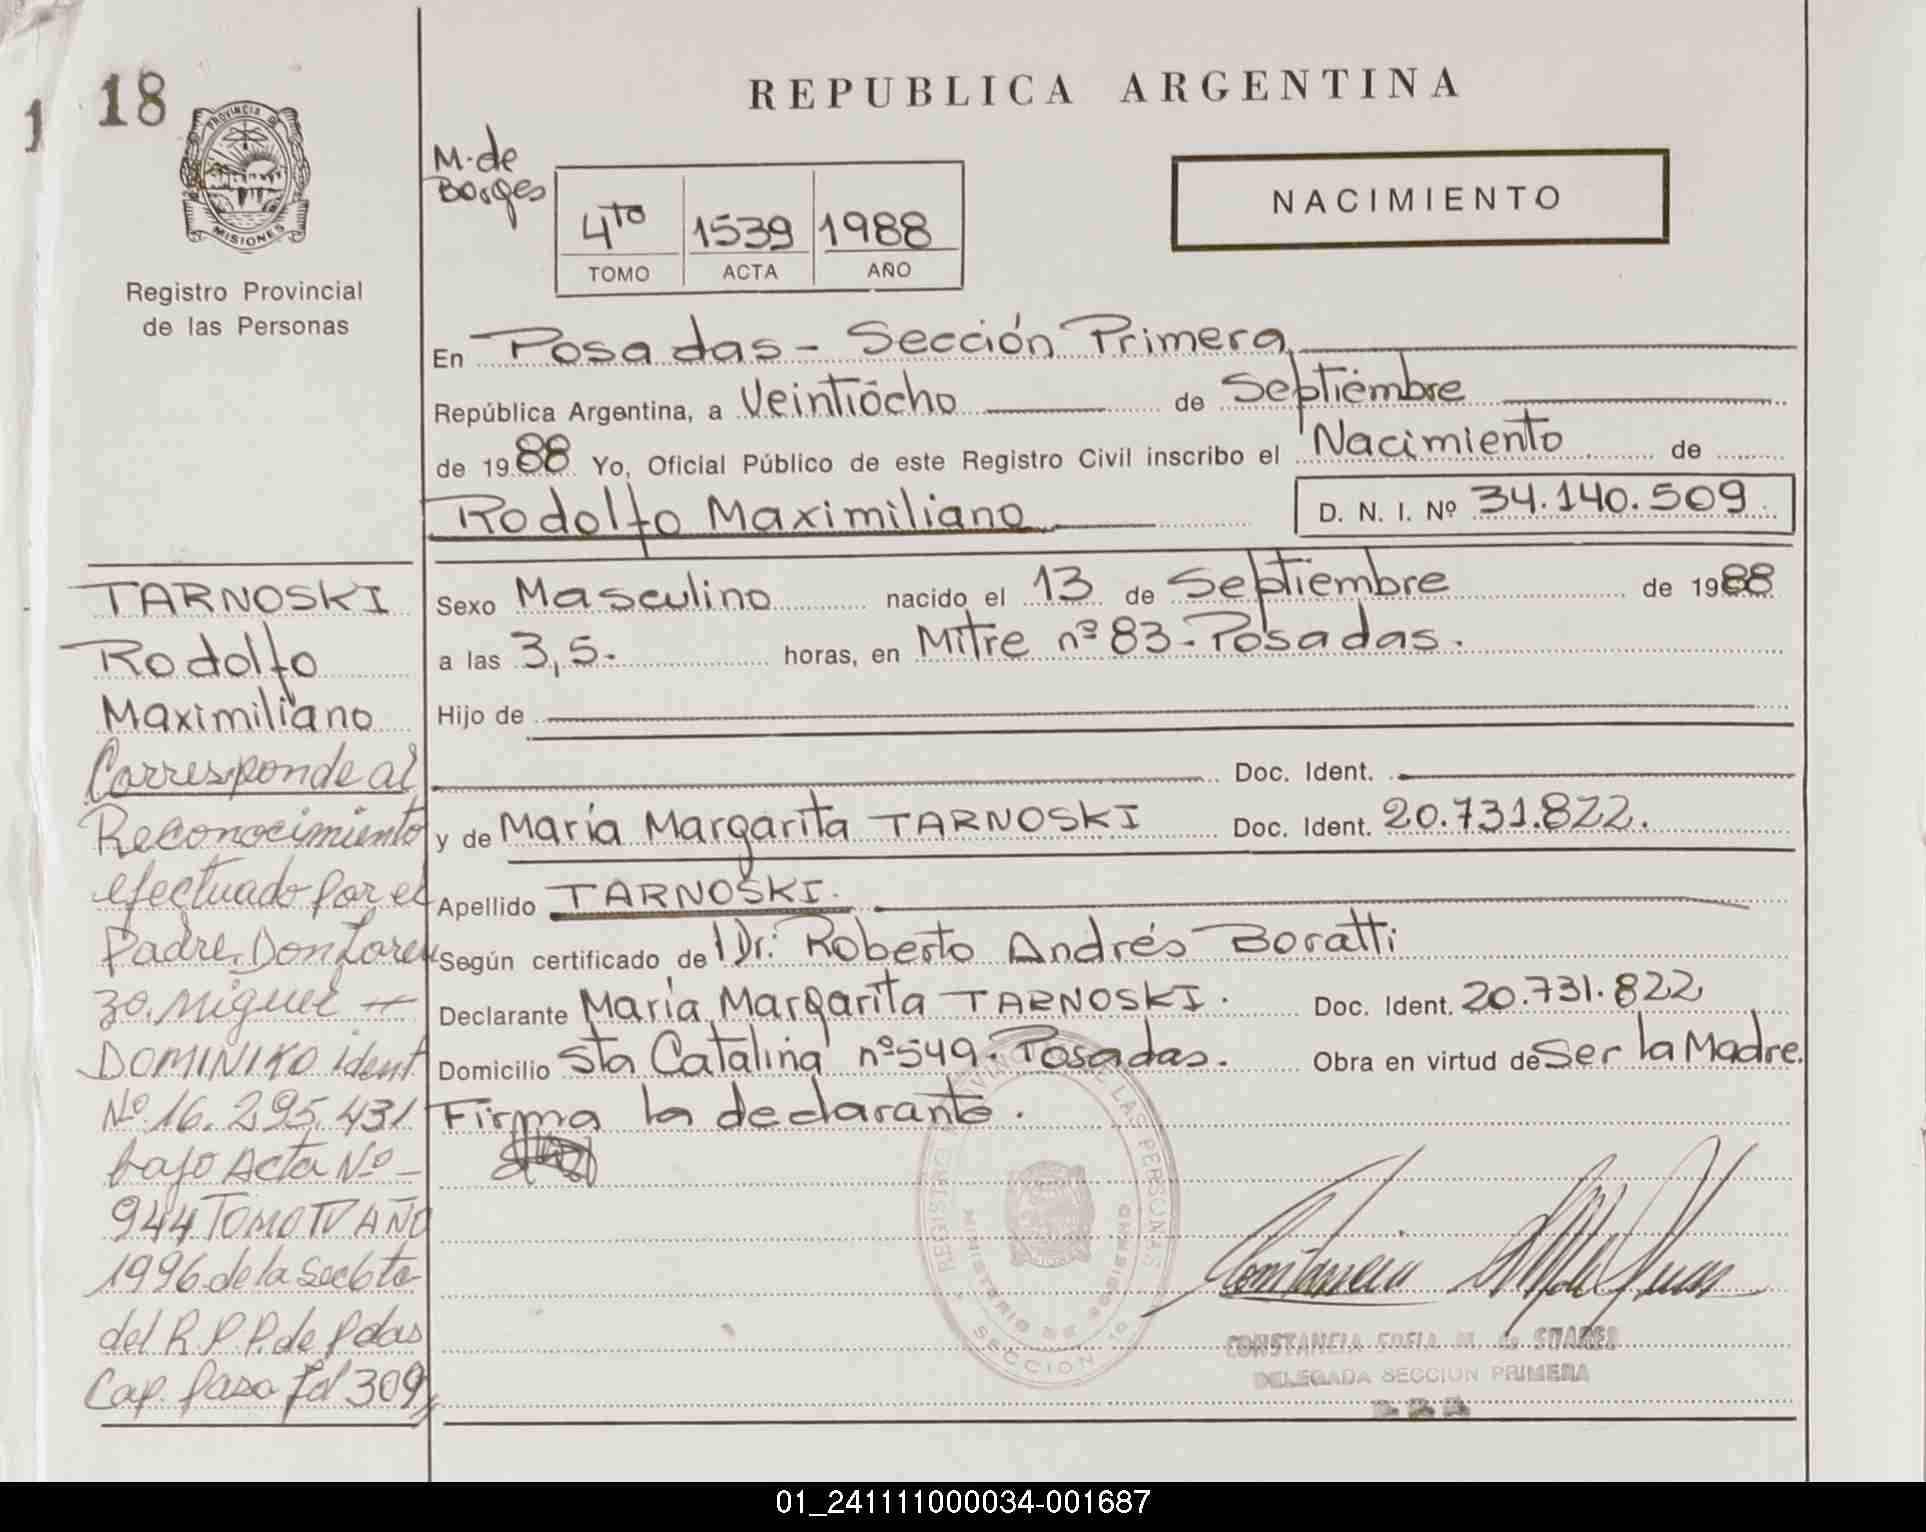 1 18
PROVINCIA DE
MISIONES
Registro Provincial
de las Personas
REPUBLICA ARGENTINA
M. de
Borges
4to 1539 1988
TOMO ACTA AÑO
NACIMIENTO
En Posadas - Sección Primera
República Argentina, a Veintiócho de Septiembre
de 1988 Yo, Oficial Público de este Registro Civil inscribo el Nacimiento de
Rodolfo Maximiliano D. N. I. Nº 34.140.509
Sexo Masculino nacido el 13 de Septiembre de 1988
a las 3,5. horas, en Mitre nº 83 - Posadas.
Hijo de
Doc. Ident.
y de María Margarita TARNOSKI Doc. Ident. 20.731.822.
Apellido TARNOSKI.
Según certificado de Dr: Roberto Andrés Boratti
Declarante María Margarita TARNOSKI. Doc. Ident. 20.731.822
Domicilio Sta Catalina nº 549. Posadas. Obra en virtud de Ser la Madre.
Firma la declarante.
TARNOSKI
Rodolfo
Maximiliano
Corresponde al
Reconocimiento
efectuado por el
Padre, Don Loren
zo. Miguel
DOMINIKO ident
Nº 16.295.431
bajo Acta Nº -
944 TOMO IV AÑO
1996 de la Secc 6ta
del R.P.P. de Pdas
Cap. Paso Fol 309
LAS PERSONAS
MINISTERIO DE GOBIERNO
SECCION 1º
CONSTANCIA SOFIA M. de SUAREZ
DELEGADA SECCION PRIMERA
01_241111000034-001687